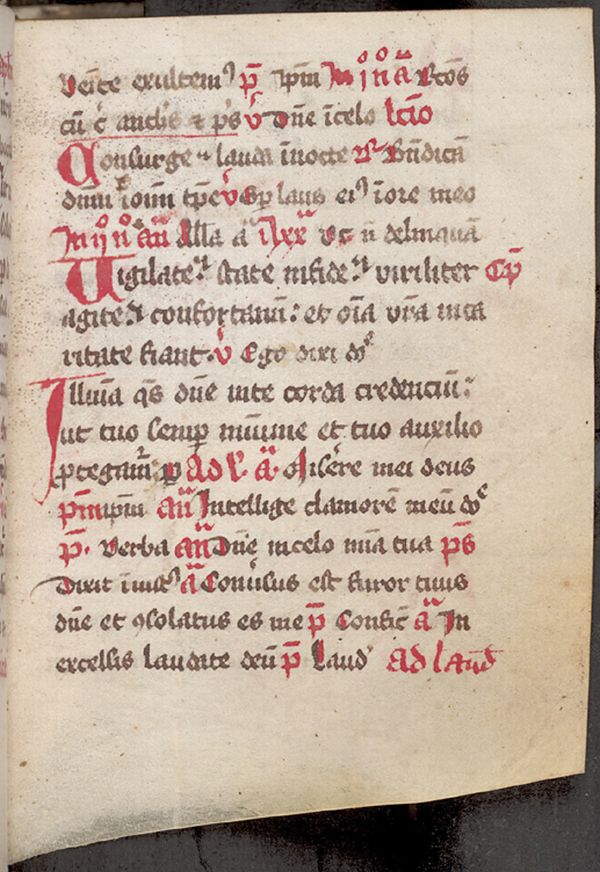 Veīte exultemꝰ p̄ ip̄m In jº nº ā Rcōs
cū c̄ ant̄bs et ps v Dn̄e īcelo lcīo
Consurge lauda īnocte R Bn̄dicā
dnm̄ ī om̄ tp̄e v Sp̄ laus eiꝰ ī ore meo
In ijº nº an̄ Alla ā Vt n̄ delinquā
Vigilate state in fide viriliter Cp̄
agite et confortam̄: et oīa vr̄a in ca
ritate fiant. v Ego dixi do
Illuīa qs̄ dn̄e in te corda credenciū:
ut tuo semp̄ munīme et tuo auxilio
ꝓtegam̄ p Ad l ā. Misēre mei deus
p̄m ip̄m an̄ Intellige clamorē meū doᵉ
p̄. Verba an̄ Dn̄e in celo mīa tua ps̄
Dixit īiustꝰ ā Conv̄sus est furor tuus
dn̄e et ꝯsolatus es me p̄ Confit̄ ā In
excelsis laudate deū p̄ Laud Ad laud